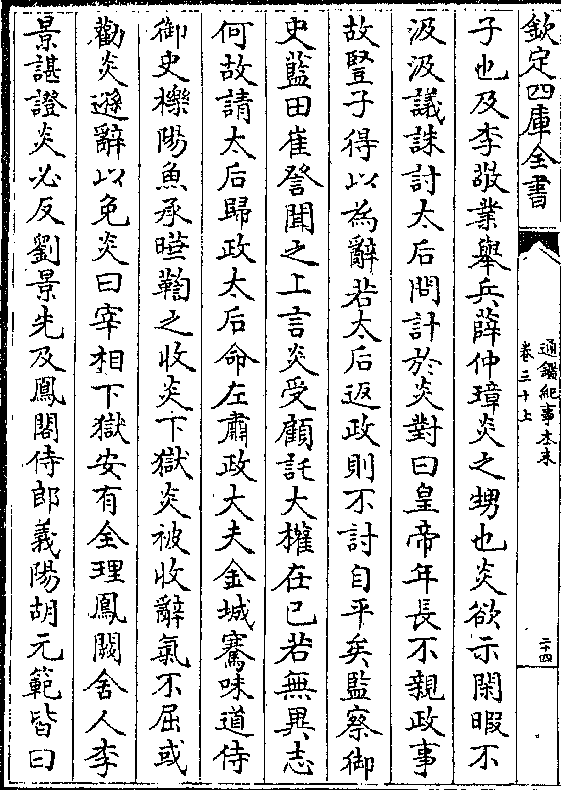 欽定四庫全書
通鑑紀事本末
卷三十上
二十四
子也及李敬業舉兵薛仲璋炎之甥也炎欲示閑暇不
汲汲議誅討太后問計於炎對曰皇帝年長不親政事
故豎子得以為辭若太后返政則不討自平矣監察御
史藍田崔詧聞之上言炎受顧託大權在已若無異志
何故請太后歸政太后命左肅政大夫金城騫味道侍
御史櫟陽魚承曮鞫之收炎下獄炎被收辭氣不屈或
勸炎遜辭以免炎曰宰相下獄安有全理鳳闕舍人李
景諶證炎必反劉景先及鳳閣侍郎義陽胡元範皆曰